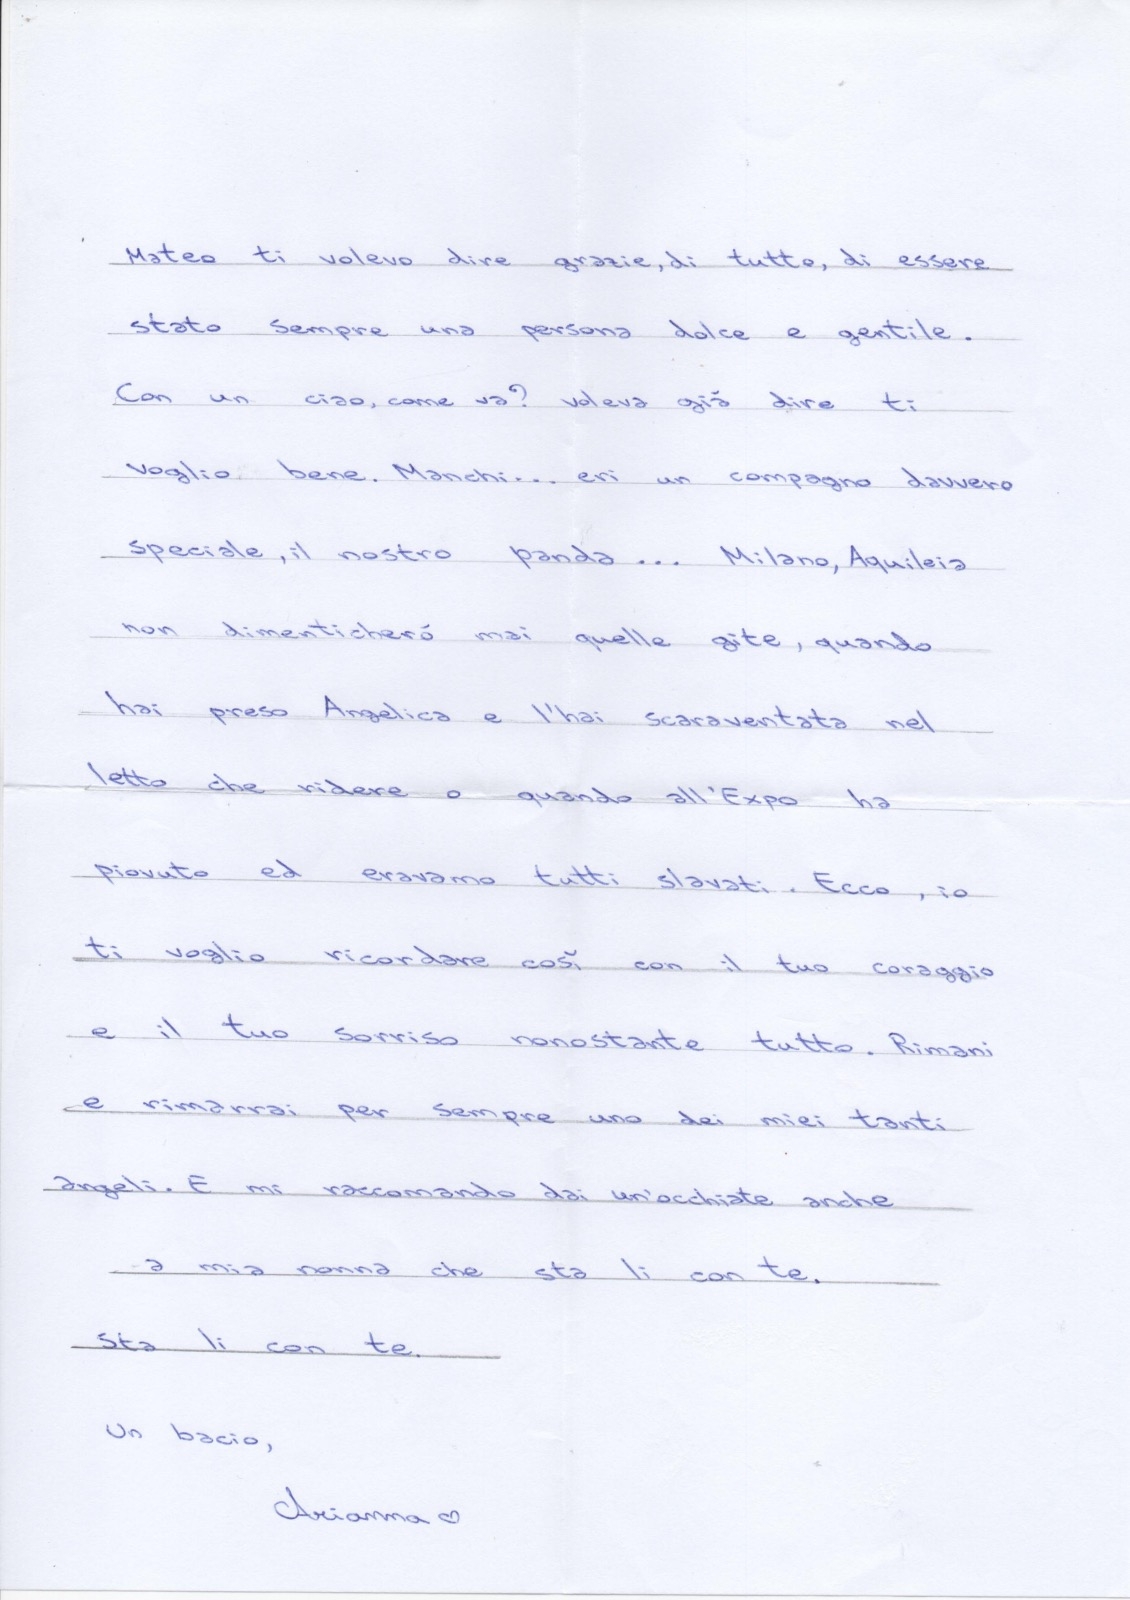 Mateo ti volevo dire grazie, di tutto, di essere
stato sempre una persona dolce e gentile.
Con un ciao, come va? voleva già dire ti
voglio bene. Manchi... eri un compagno davvero
speciale, il nostro panda... Milano, Aquileia
non dimenticheró mai quelle gite, quando
hai preso Angelica e l'hai scaraventata nel
letto che ridere o quando all'Expo ha
piovuto ed eravamo tutti slavati. Ecco, io
ti voglio ricordare così con il tuo coraggio
e il tuo sorriso nonostante tutto. Rimani
e rimarrai per sempre uno dei miei tanti
angeli. E mi raccomando dai un'occhiate anche
a mia nonna che sta li con te.
sta li con te.
Un bacio,
Arianna ♡